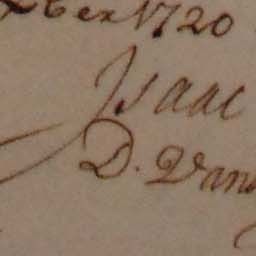 8ber 1720
Isaac
D. Van